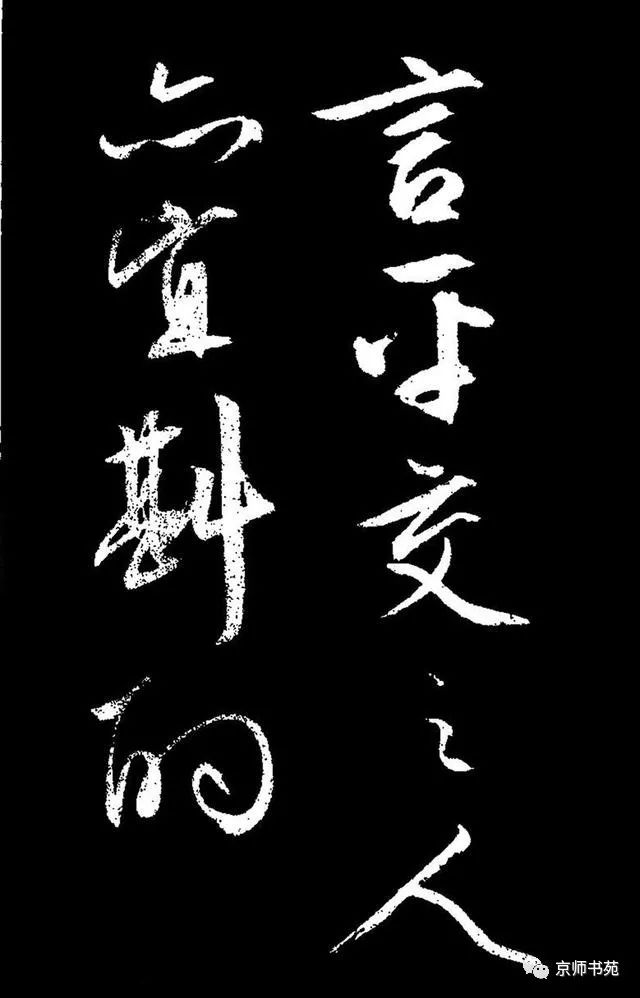 言平交之人
亦宜斟酌
京师书苑